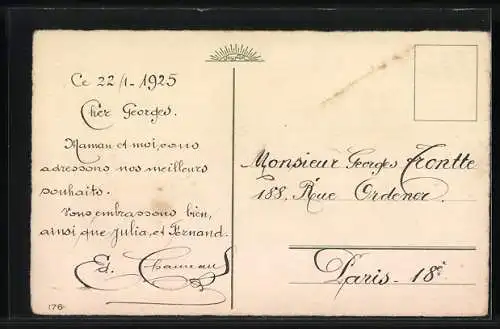 Ce 22/1-1925
Cher Georges.
Maman et moi, vous
adressons nos meilleurs
souhaits.
Vous embrassons bien,
ainsi que Julia, et Bernand.
Ed.
176
Monsieur Georges
188, Rue Ordener.
Paris - 18e